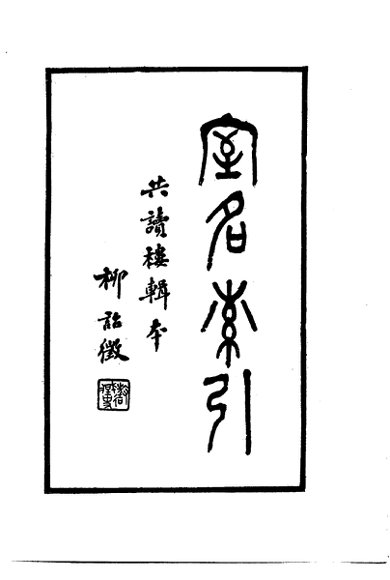 室名索引
共讀樓輯本
柳詒徵